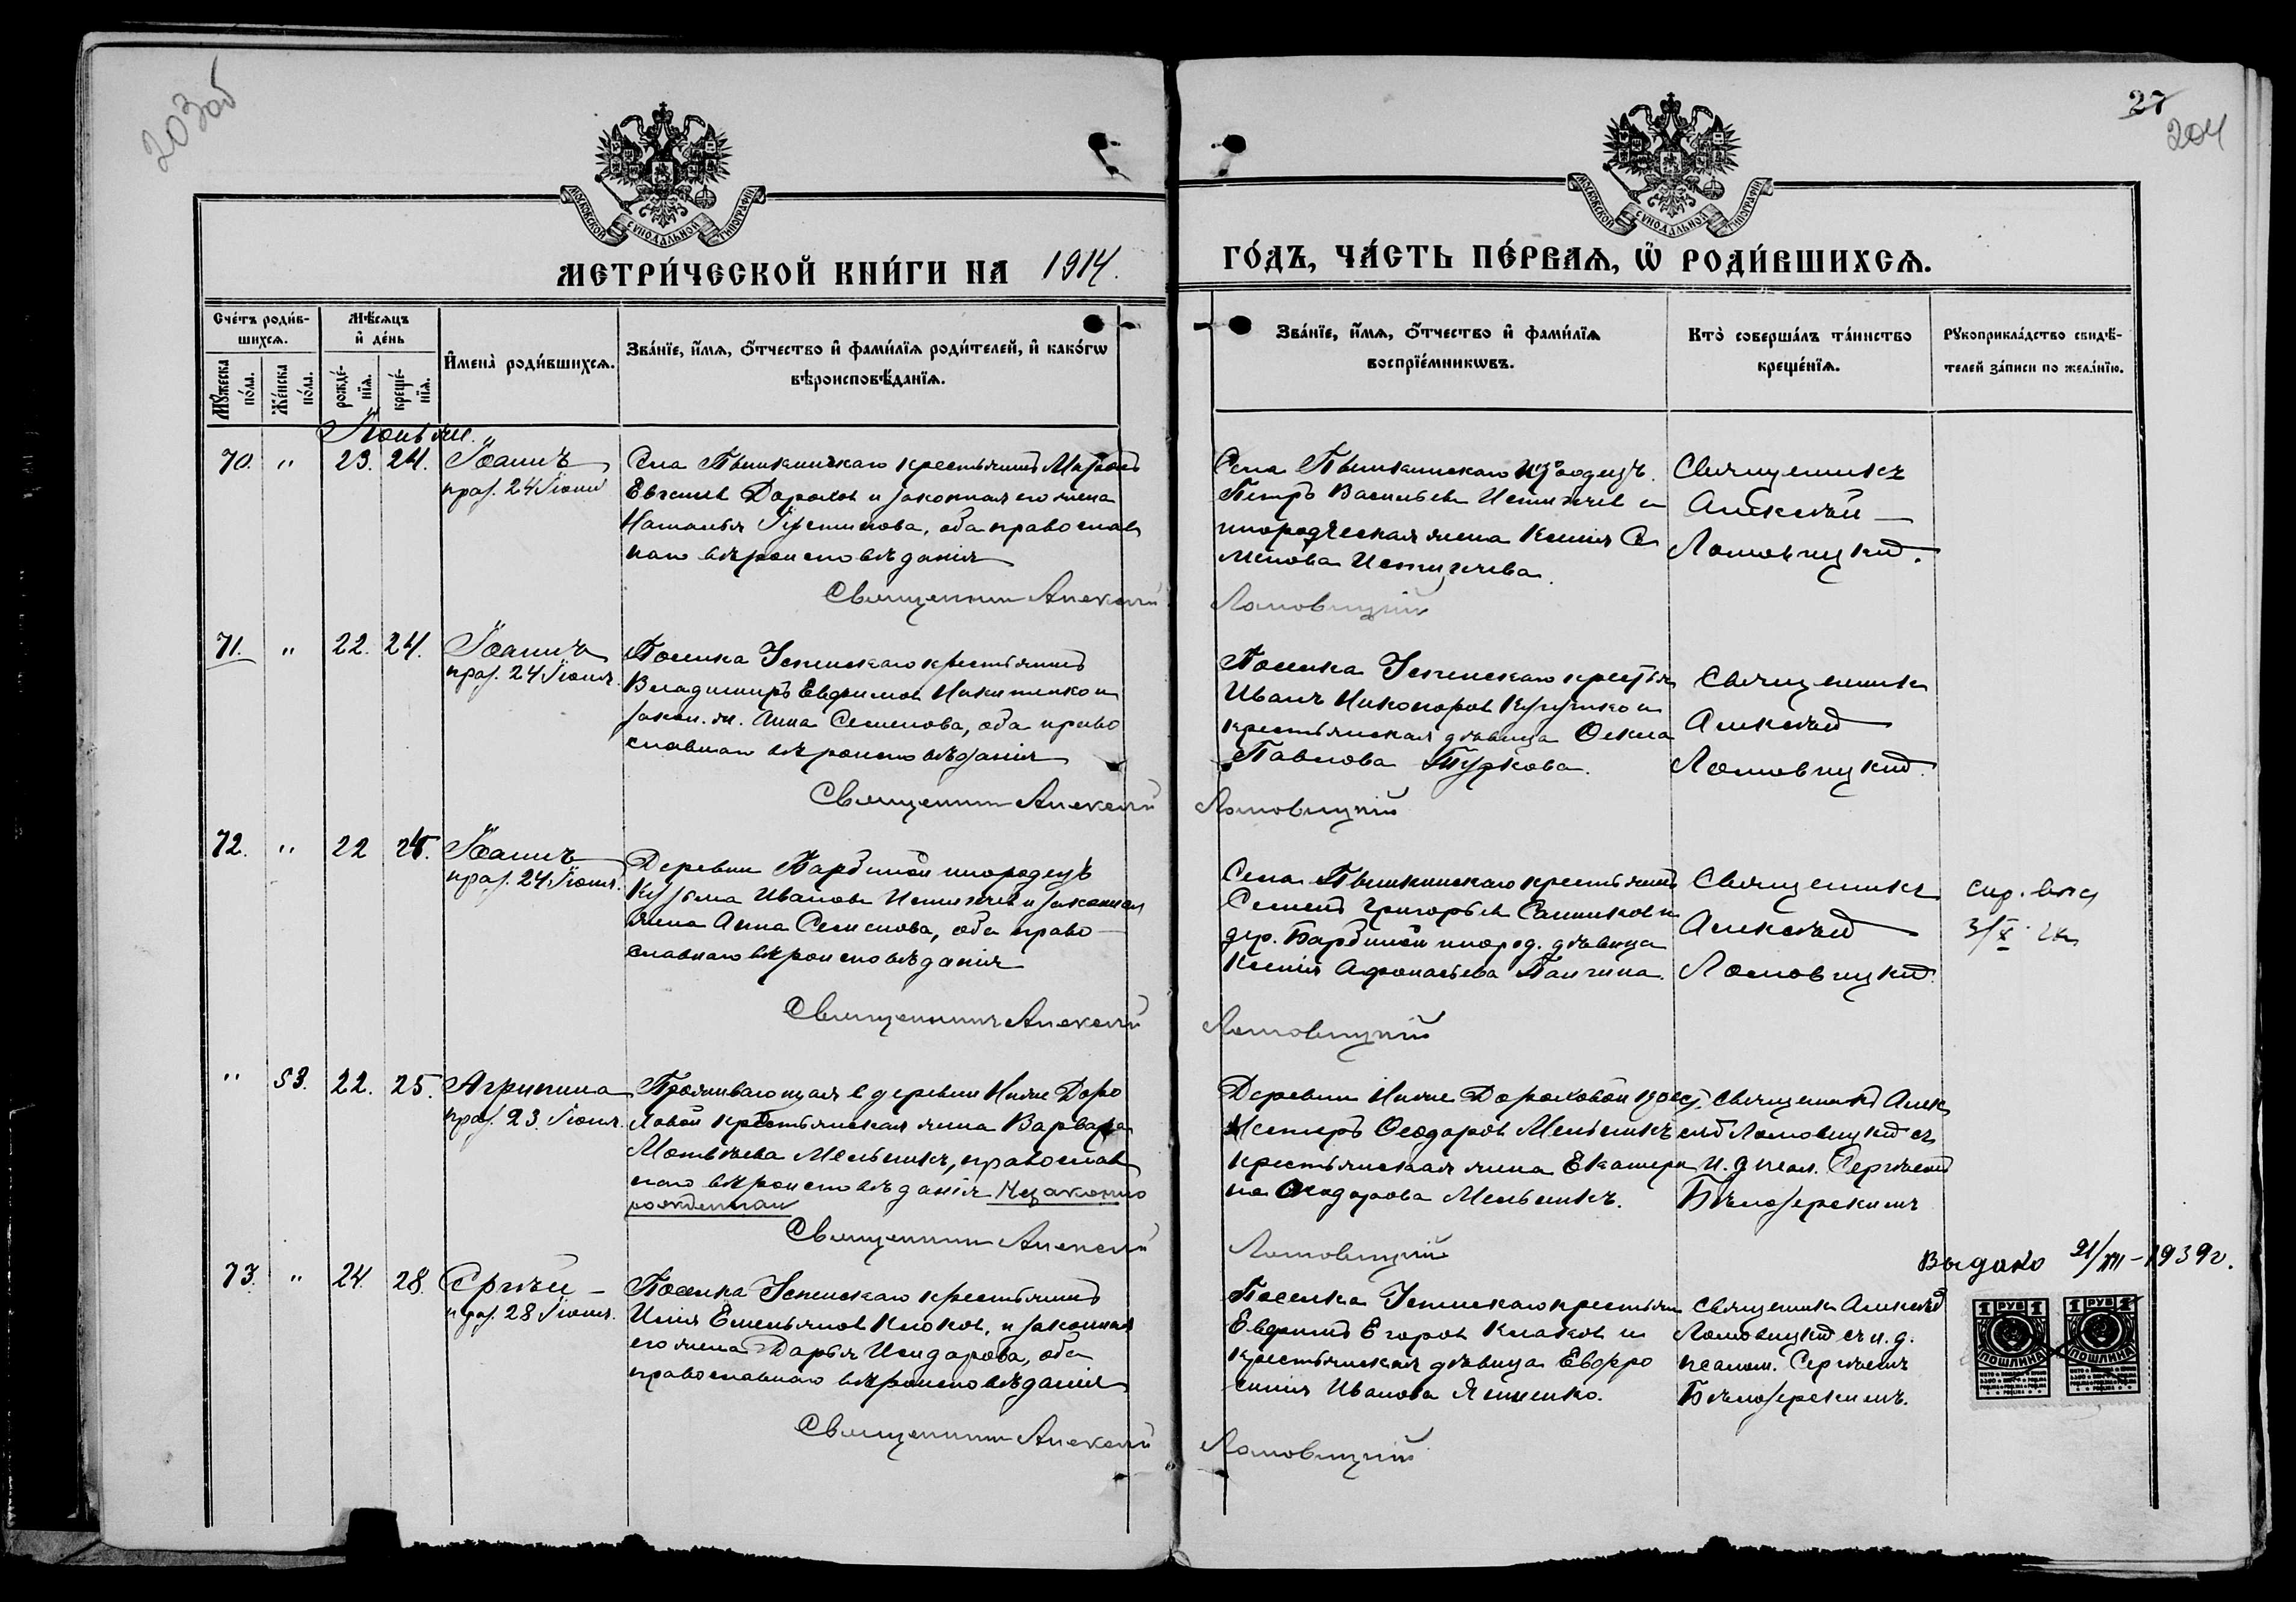 203об
27
204
МОСКОВСКОЙ СУНОДАЛЬНОЙ ТИПОГРАФІИ
МОСКОВСКОЙ СУНОДАЛЬНОЙ ТИПОГРАФІИ
МЕТРИ́ЧЕСКОЙ КНИ́ГИ НА 1914.
ГО́ДЪ, ЧА́СТЬ ПЕ́РВАѦ, Ѡ҆ РОДИ́ВШИХСѦ.
Сче́тъ роди́в-
шихсѧ.
Мꙋ́жеска по́ла.
Же́нска по́ла.
Мѣ́сѧцъ
и҆ де́нь
рожде́-
нїѧ.
креще́-
нїѧ.
И҆мена̀ роди́вшихсѧ.
Зва́нїе, и҆́мѧ, ѻ҆́тчество и҆ фами́лїѧ роди́телей, и҆ како́гѡ
вѣроисповѣ́данїѧ.
Зва́нїе, и҆́мѧ, ѻ҆́тчество и҆ фами́лїѧ
воспрїе́мникѡвъ.
Кто̀ соверша́лъ та́инство
креще́нїѧ.
Рꙋкоприкла́дство свидѣ́-
телей за́писи по жела́нїю.
Іюнь
70. " 23. 24. Іоаннъ
праз. 24 Іюня
Села Пышкинскаго крестьянинъ
Евгеньев Дорохов и законная его жена
Наталья Устинова, оба православ
наго вѣроисповѣданія
Священник Алексей
Села Пышкинскаго инородецъ
Петръ Васильев Истигечев и
инородческая жена Ксенія Се
менова Истигечева.
Ломовицкий
Священникъ
Алексѣй
Ломовицкій.
71. " 22. 24. Іоаннъ
праз. 24 Іюня.
Поселка Успенскаго крестьянинъ
Владимиръ Евфимов Никитенко и
закон. ж. Анна Семенова, оба право
славнаго вѣроисповѣданія
Священник Алексей
Поселка Успенскаго крестьян
Иванъ Никоноров и
крестьянская дѣвица Фекла
Павлова Туркова.
Ломовицкий
Священникъ
Алексѣй
Ломовицкій.
72. " 22 25. Іоаннъ
праз. 24 Іюня.
Деревни Барбиной инородецъ
Кузьма Иванов Истигечев и законная
жена Анна Семенова, оба право
славнаго вѣроисповѣданія
Священник Алексей
Села Пышкинскаго крестьянинъ
Семенъ Григорьев Санников и
дер. Барбиной инород. дѣвица
Ксенія Афонасьева Пангина.
Ломовицкий
Священникъ
Алексѣй
Ломовицкій.
спр.
3/X
" 53. 22. 25. Агрипина
праз. 23. Іюня.
Проживающая в деревни Ниже Доро
ховой крестьянская жена Варвара
Матвѣева Мельникъ, православ
наго вѣроисповѣданія незаконно
рожденная
Священник Алексей
Деревни Ниже Дороховой крест.
Нестеръ Феодоров Мельникъ
крестьянская жена Екатери
на Феодорова Мельникъ.
Ломовицкий
Священникъ Алек
сѣй Ломовицкій съ
и. д. псал. Сергѣемъ
Бѣлозерскимъ
73. " 24. 28. Сергѣй
праз. 28 Іюня.
Поселка Успенскаго крестьянинъ
Илія Емельянов Клоков, и законная
его жена Дарья Исидорова, оба
православнаго вѣроисповѣданія
Священник Алексей
Поселка Успенскаго крестьян
Евфимъ Егоров Клоков и
крестьянская дѣвица Евфро
синія Иванова Яшненко.
Ломовицкий
Священникъ Алексѣй
Ломовицкій съ и. д.
псалом. Сергѣемъ
Бѣлозерскимъ.
Выдано 21/XII-1939г.
1 РУБ 1
ПОШЛИНА
1 РУБ 1
ПОШЛИНА